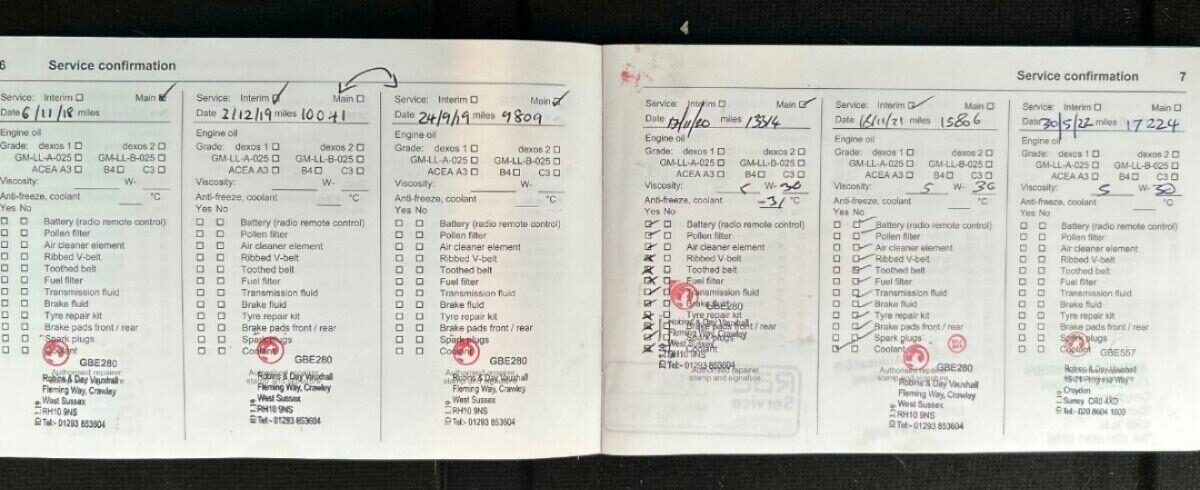 6 Service confirmation
Service: Interim ☐ Main ☑
Date 6/11/18 miles
Engine oil
Grade: dexos 1 ☐ dexos 2 ☐
GM-LL-A-025 ☐ GM-LL-B-025 ☐
ACEA A3 ☐ B4 ☐ C3 ☐
Viscosity: W-
Anti-freeze, coolant °C
Yes No
Battery (radio remote control)
Pollen filter
Air cleaner element
Ribbed V-belt
Toothed belt
Fuel filter
Transmission fluid
Brake fluid
Tyre repair kit
Brake pads front / rear
Spark plugs
Coolant
GBE280
Authorised repairer
Robins & Day Vauxhall
Fleming Way, Crawley
West Sussex
RH10 9NS
Tel:- 01293 853604
Service: Interim ☑ Main ☐
Date 2/12/19 miles 10041
Engine oil
Grade: dexos 1 ☐ dexos 2 ☐
GM-LL-A-025 ☐ GM-LL-B-025 ☐
ACEA A3 ☐ B4 ☐ C3 ☐
Viscosity: W-
Anti-freeze, coolant °C
Yes No
Battery (radio remote control)
Pollen filter
Air cleaner element
Ribbed V-belt
Toothed belt
Fuel filter
Transmission fluid
Brake fluid
Tyre repair kit
Brake pads front / rear
Spark plugs
Coolant
GBE280
Authorised repairer
stamp and signature
Robins & Day Vauxhall
Fleming Way, Crawley
West Sussex
RH10 9NS
Tel:- 01293 853604
Service: Interim ☐ Main ☑
Date 24/9/19 miles 9809
Engine oil
Grade: dexos 1 ☐ dexos 2 ☐
GM-LL-A-025 ☐ GM-LL-B-025 ☐
ACEA A3 ☐ B4 ☐ C3 ☐
Viscosity: W-
Anti-freeze, coolant °C
Yes No
Battery (radio remote control)
Pollen filter
Air cleaner element
Ribbed V-belt
Toothed belt
Fuel filter
Transmission fluid
Brake fluid
Tyre repair kit
Brake pads front / rear
Spark plugs
Coolant
GBE280
Authorised repairer
stamp and signature
Robins & Day Vauxhall
Fleming Way, Crawley
West Sussex
RH10 9NS
Tel:- 01293 853604
Service confirmation 7
Service: Interim ☐ Main ☑
Date 17/11/20 miles 13314
Engine oil
Grade: dexos 1 ☐ dexos 2 ☐
GM-LL-A-025 ☐ GM-LL-B-025 ☐
ACEA A3 ☐ B4 ☐ C3 ☐
Viscosity: 5 W-30
Anti-freeze, coolant -31 °C
Yes No
Battery (radio remote control)
Pollen filter
Air cleaner element
Ribbed V-belt
Toothed belt
Fuel filter
Transmission fluid
Brake fluid
GBE280
Tyre repair kit
Brake pads front / rear
Spark plugs
Coolant
Robins & Day Vauxhall
Fleming Way, Crawley
West Sussex
RH10 9NS
Tel:- 01293 853604
Authorised repairer
stamp and signature
Service: Interim ☑ Main ☐
Date 16/11/21 miles 15806
Engine oil
Grade: dexos 1 ☐ dexos 2 ☐
GM-LL-A-025 ☐ GM-LL-B-025 ☐
ACEA A3 ☐ B4 ☐ C3 ☐
Viscosity: 5 W-30
Anti-freeze, coolant °C
Yes No
Battery (radio remote control)
Pollen filter
Air cleaner element
Ribbed V-belt
Toothed belt
Fuel filter
Transmission fluid
Brake fluid
Tyre repair kit
Brake pads front / rear
Spark plugs
Coolant
GBE280
Authorised repairer
stamp and signature
Robins & Day Vauxhall
Fleming Way, Crawley
West Sussex
RH10 9NS
Tel:- 01293 853604
Service: Interim ☐ Main ☐
Date 30/5/22 miles 17224
Engine oil
Grade: dexos 1 ☐ dexos 2 ☐
GM-LL-A-025 ☐ GM-LL-B-025 ☐
ACEA A3 ☐ B4 ☐ C3 ☐
Viscosity: 5 W-30
Anti-freeze, coolant °C
Yes No
Battery (radio remote control)
Pollen filter
Air cleaner element
Ribbed V-belt
Toothed belt
Fuel filter
Transmission fluid
Brake fluid
Tyre repair kit
Brake pads front / rear
Spark plugs
Coolant
GBE557
Robins & Day Vauxhall
Progress Way
Croydon
Surrey CR0 4XD
Tel:- 020 8604 1000